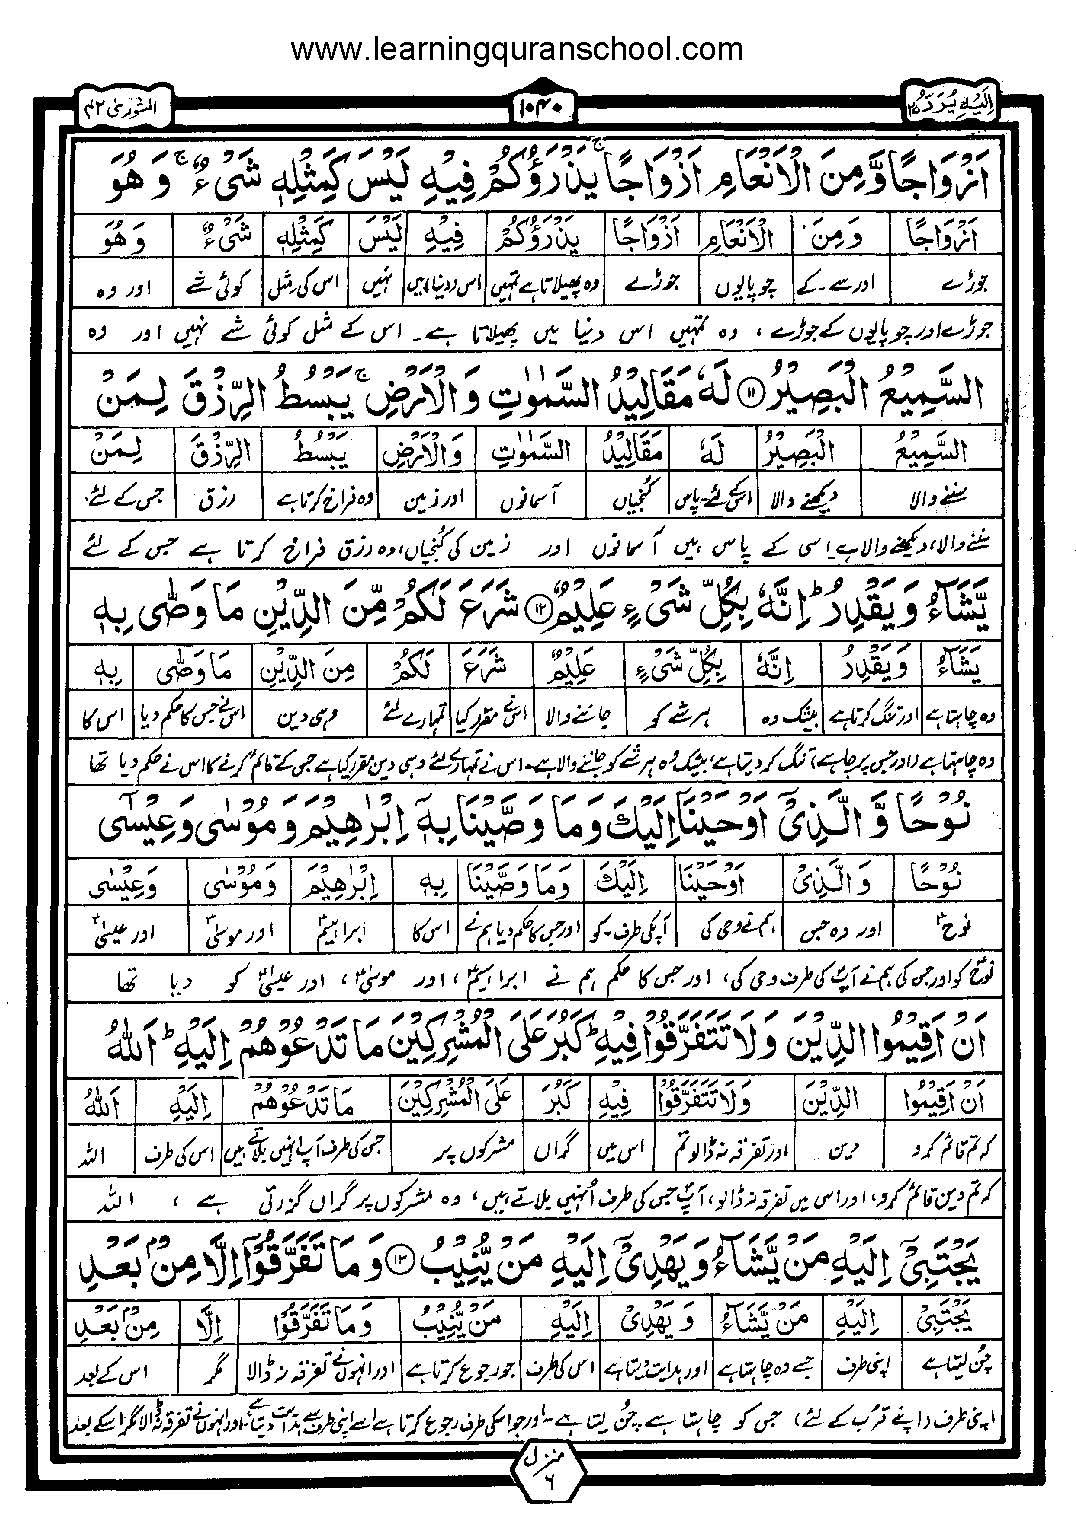 www.learningquranschool.com
الشورىٰ ۴۲
۱۰۴۰
اِلَیْہِ یُرَدُّ ۲۵
اَزْوَاجًا وَّمِنَ الْاَنْعَامِ اَزْوَاجًا ۚ یَذْرَؤُكُمْ فِیْهِ لَیْسَ كَمِثْلِهٖ شَیْءٌ ۚ وَهُوَ
اَزْوَاجًا وَمِنَ الْاَنْعَامِ اَزْوَاجًا یَذْرَؤُكُمْ فِیْهِ لَیْسَ كَمِثْلِهٖ شَیْءٌ وَهُوَ
جوڑے اور سے۔ کے چوپایوں جوڑے وہ پھیلاتا ہے تمہیں اس (دنیا) میں نہیں اس کی مثل کوئی شے اور وہ
جوڑے اور چوپایوں کے جوڑے، وہ تمہیں اس دنیا میں پھیلاتا ہے۔ اس کے مثل کوئی شے نہیں اور وہ
السَّمِیْعُ الْبَصِیْرُ ۝۱۱ لَهٗ مَقَالِیْدُ السَّمٰوٰتِ وَالْاَرْضِ ۚ یَبْسُطُ الرِّزْقَ لِمَنْ
السَّمِیْعُ الْبَصِیْرُ لَهٗ مَقَالِیْدُ السَّمٰوٰتِ وَالْاَرْضِ یَبْسُطُ الرِّزْقَ لِمَنْ
سننے والا دیکھنے والا اسکے لئے۔ پاس کنجیاں آسمانوں اور زمین وہ فراخ کرتا ہے رزق جس کے لئے
سننے والا، دیکھنے والا ہے۔ اسی کے پاس ہیں آسمانوں اور زمین کی کنجیاں، وہ رزق فراخ کرتا ہے جس کے لئے
یَّشَآءُ وَیَقْدِرُ ؕ اِنَّهٗ بِكُلِّ شَیْءٍ عَلِیْمٌ ۝۱۲ شَرَعَ لَكُمْ مِّنَ الدِّیْنِ مَا وَصّٰی بِهٖ
یَشَآءُ وَیَقْدِرُ اِنَّهٗ بِكُلِّ شَیْءٍ عَلِیْمٌ شَرَعَ لَكُمْ مِنَ الدِّیْنِ مَا وَصّٰی بِهٖ
وہ چاہتا ہے اور تنگ کرتا ہے بیشک وہ ہر شے کو جاننے والا اس نے مقرر کیا تمہارے لئے وہی دین اس نے جس کا حکم دیا اس کا
وہ چاہتا ہے (اور جس پر چاہے) تنگ کر دیتا ہے، بیشک وہ ہر شے کو جاننے والا ہے۔ اس نے تمہارے لئے وہی دین مقرر کیا ہے جس کے قائم کرنے کا اس نے حکم دیا تھا
نُوْحًا وَّالَّذِیْۤ اَوْحَیْنَاۤ اِلَیْكَ وَمَا وَصَّیْنَا بِهٖۤ اِبْرٰهِیْمَ وَمُوْسٰی وَعِیْسٰۤی
نُوْحًا وَالَّذِیْ اَوْحَیْنَا اِلَیْكَ وَمَا وَصَّیْنَا بِهٖ اِبْرٰهِیْمَ وَمُوْسٰی وَعِیْسٰی
نوحؑ اور وہ جس ہم نے وحی کی آپکی طرف۔ کو اور جس کا حکم دیا ہم نے اس کا ابراہیمؑ اور موسیٰؑ اور عیسیٰؑ
نوحؑ کو اور جس کی ہم نے آپؐ کی طرف وحی کی، اور جس کا حکم ہم نے ابراہیمؑ، اور موسیٰؑ، اور عیسیٰؑ کو دیا تھا
اَنْ اَقِیْمُوا الدِّیْنَ وَلَا تَتَفَرَّقُوْا فِیْهِ ؕ كَبُرَ عَلَی الْمُشْرِكِیْنَ مَا تَدْعُوْهُمْ اِلَیْهِ ؕ اَللّٰهُ
اَنْ اَقِیْمُوا الدِّیْنَ وَلَا تَتَفَرَّقُوْا فِیْهِ كَبُرَ عَلَی الْمُشْرِكِیْنَ مَا تَدْعُوْهُمْ اِلَیْهِ اَللّٰهُ
کہ تم قائم کرو دین اور تفرقہ نہ ڈالو تم اس میں گراں مشرکوں پر جس کی طرف آپ انہیں بلاتے ہیں اس کی طرف اللہ
کہ تم دین قائم کرو، اور اس میں تفرقہ نہ ڈالو، آپؐ جس کی طرف اُنہیں بلاتے ہیں، وہ مشرکوں پر گراں گزرتی ہے، اللہ
یَجْتَبِیْۤ اِلَیْهِ مَنْ یَّشَآءُ وَیَهْدِیْۤ اِلَیْهِ مَنْ یُّنِیْبُ ۝۱۳ وَمَا تَفَرَّقُوْۤا اِلَّا مِنْۢ بَعْدِ
یَجْتَبِیْ اِلَیْهِ مَنْ یَّشَآءُ وَیَهْدِیْ اِلَیْهِ مَنْ یُّنِیْبُ وَمَا تَفَرَّقُوْا اِلَّا مِنْۢ بَعْدِ
چن لیتا ہے اپنی طرف جسے وہ چاہتا ہے اور ہدایت دیتا ہے اس کی طرف جو رجوع کرتا ہے اور انہوں نے تفرقہ نہ ڈالا مگر اس کے بعد
اپنی طرف (اپنے قرب کے لئے) جس کو چاہتا ہے چن لیتا ہے۔ اور جو اسکی طرف رجوع کرتا ہے اسے اپنی طرف سے ہدایت دیتا ہے۔ اور انہوں نے تفرقہ نہ ڈالا مگر اسکے بعد
منزل ۶